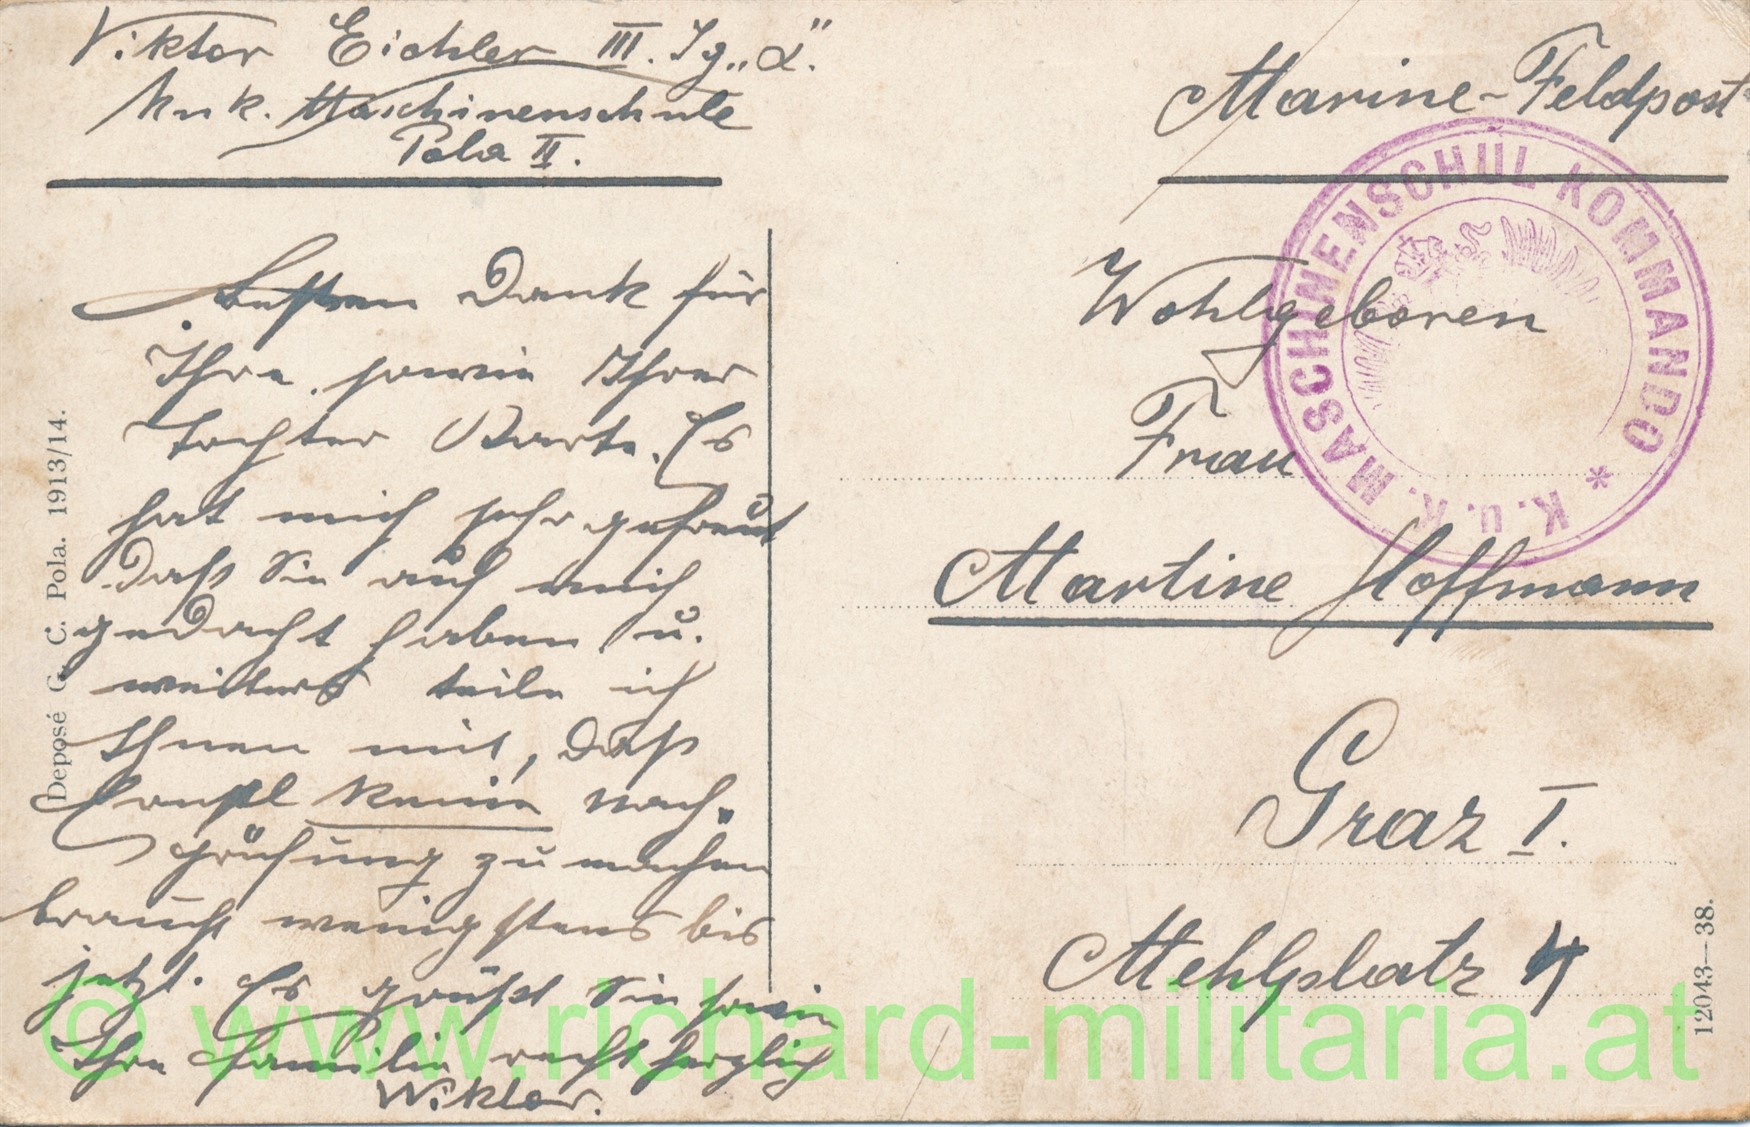 Viktor Eichler III. Jg „L"
k.u.k. Maschinenschule
Pola II.
Marine-Feldpost
K. u. K. MASCHINENSCHUL-KOMMANDO *
Besten Dank für
Ihre, sowie Ihrer
Tochter Karte. Es
hat mich sehr gefreut
daß Sie auch mich
gedacht haben u.
weiters teile ich
Ihnen mit, daß
Ernstl keine Nach„
prüfung zu machen
braucht wenigstens bis
jetzt. Es grüßt Sie sowie
Ihre Familie recht herzlich
Wiktor.
Wohlgeboren
Frau
Martine Hoffmann
Graz I.
Mehlplatz 4
Deposé G. C. Pola. 1913/14.
12043—38.
© www.richard-militaria.at